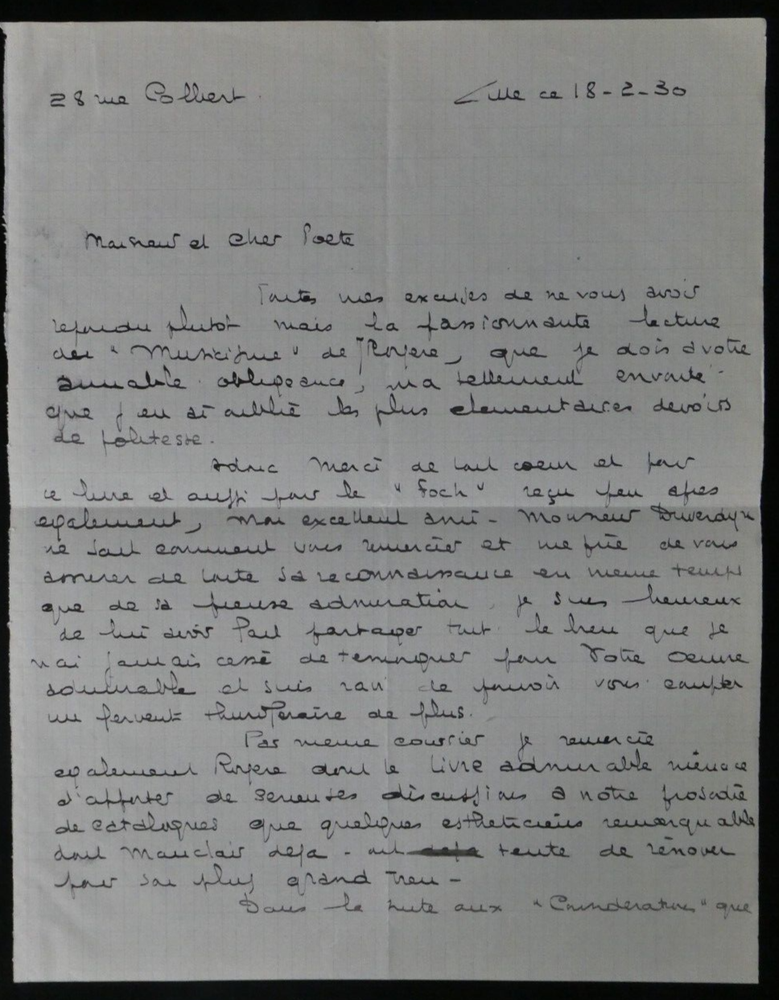 28 rue Colbert
Lille ce 18-2-30
Monsieur et Cher Poete
Toutes mes excuses de ne vous avoir
repondu plutot mais la passionnante lecture
du " Musicisme " de Royere, que je dois a votre
aimable obligeance, m'a tellement envouté
que j'en ai oublié les plus elementaires devoirs
de politesse.
adonc Merci de tout coeur et pour
ce livre et aussi pour le " Foch " reçu peu apres
egalement, mon excellent ami - Monsieur
ne sait comment vous remercier et me prie de vous
assurer de toute sa reconnaissance en meme temps
que de sa pieuse admiration, je suis heureux
de lui avoir fait partager tout le bien que je
n'ai jamais cessé de temoigner pour Votre Oeuvre
admirable et suis ravi de pouvoir vous compter
un fervent thuriferaire de plus.
Par meme courrier je remercie
egalement Royere dont le Livre admirable menace
d'apporter de serieuses discussions à notre prosodie
de catalogues que quelques estheticiens remarquable
dont Mauclair deja - ont tenté de rénover
pour son plus grand
Dans la suite aux " Considerations " que